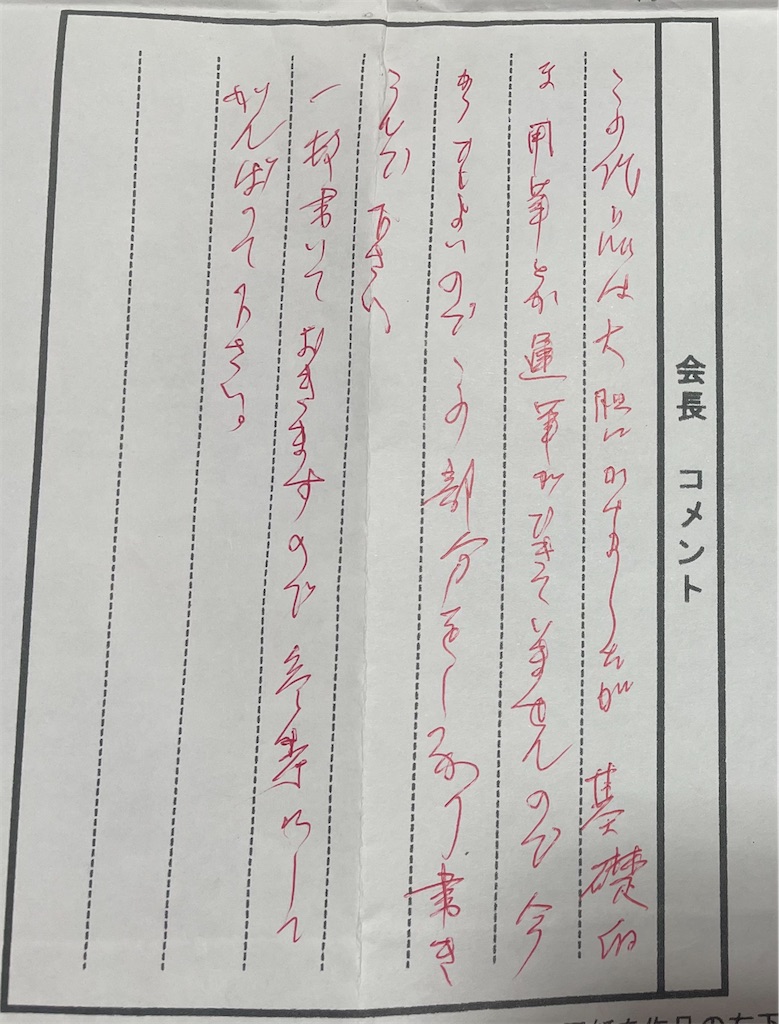 会長 コメント
この作品は大胆にかけましたが 基礎的
ま用筆とか運筆ができていませんので 今
からでもよいので この部分をしっかり書き
こんで 下さい
一枚書いて おきますので 参考にして
がんばって下さい。